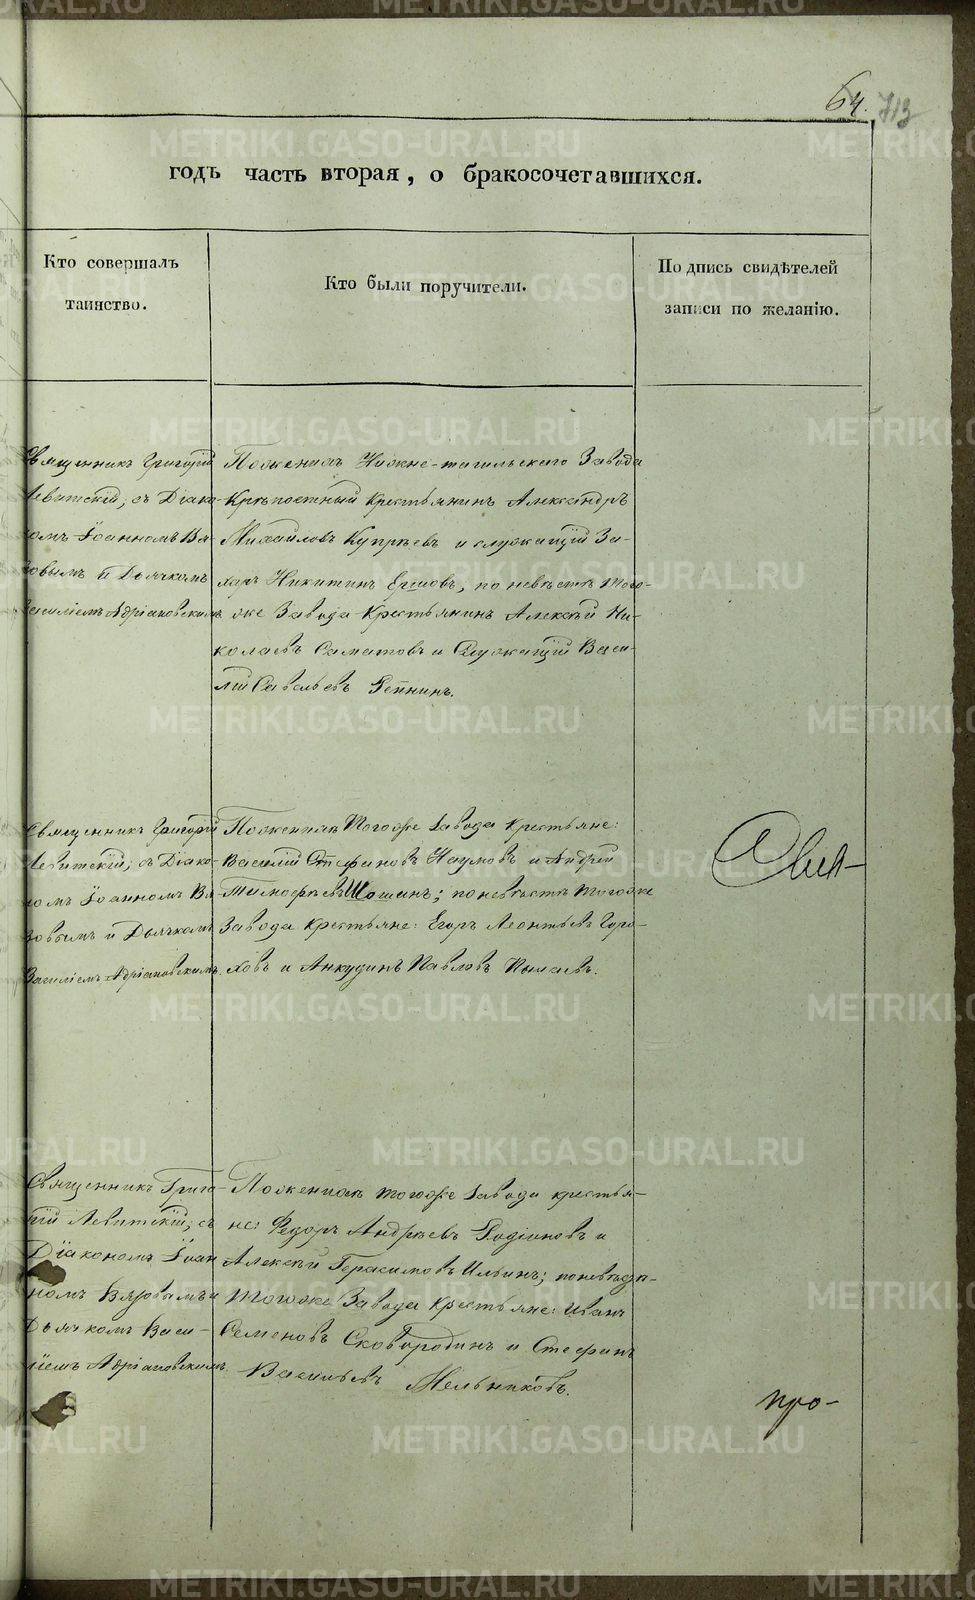 64. 713
годъ часть вторая, о бракосочетавшихся.
Кто совершалъ
таинство.
Кто были поручители.
Подпись свидѣтелей
записи по желанію.
Священникъ Григорій
Левитскій, съ Діако-
номъ Іоанномъ Вя-
зовымъ и Дьячкомъ
Василіемъ Адріановскимъ
По женихѣ Нижне-тагильскаго Завода
Крѣпостный Крестьянинъ Александръ
Михайловъ Купрѣевъ и служащій За-
харъ Никитинъ Ершовъ, по невѣстѣ того-
же Завода Крестьянинъ Алексѣй Ни-
колаевъ Саматовъ и Служащій Васи-
лій Савельевъ Рѣпнинъ.
Священникъ Григорій
Левитскій, съ Діако-
номъ Іоанномъ Вя-
зовымъ и Дьячкомъ
Василіемъ Адріановскимъ.
По женихѣ тогоже Завода Крестьяне:
Василій Стефановъ Наумовъ и Андрей
Тимофѣевъ Шошинъ; по невѣстѣ тогоже
Завода Крестьяне: Егоръ Леонтьевъ Горо-
ховъ и Анкудинъ Павловъ Пылаевъ.
Свя-
Священникъ Григо-
рій Левитскій, съ
Діакономъ Іоан-
номъ Вязовымъ и
Дьячкомъ Васи-
ліемъ Адріановскимъ.
По женихѣ тогоже Завода крестья-
не: Федоръ Андрѣевъ Родіоновъ и
Алексѣй Герасимовъ Ильинъ; по невѣстѣ
тогоже Завода Крестьяне: Иванъ
Семеновъ Сковородинъ и Стефанъ
Васильевъ Мельниковъ.
про-
METRIKI.GASO-URAL.RU